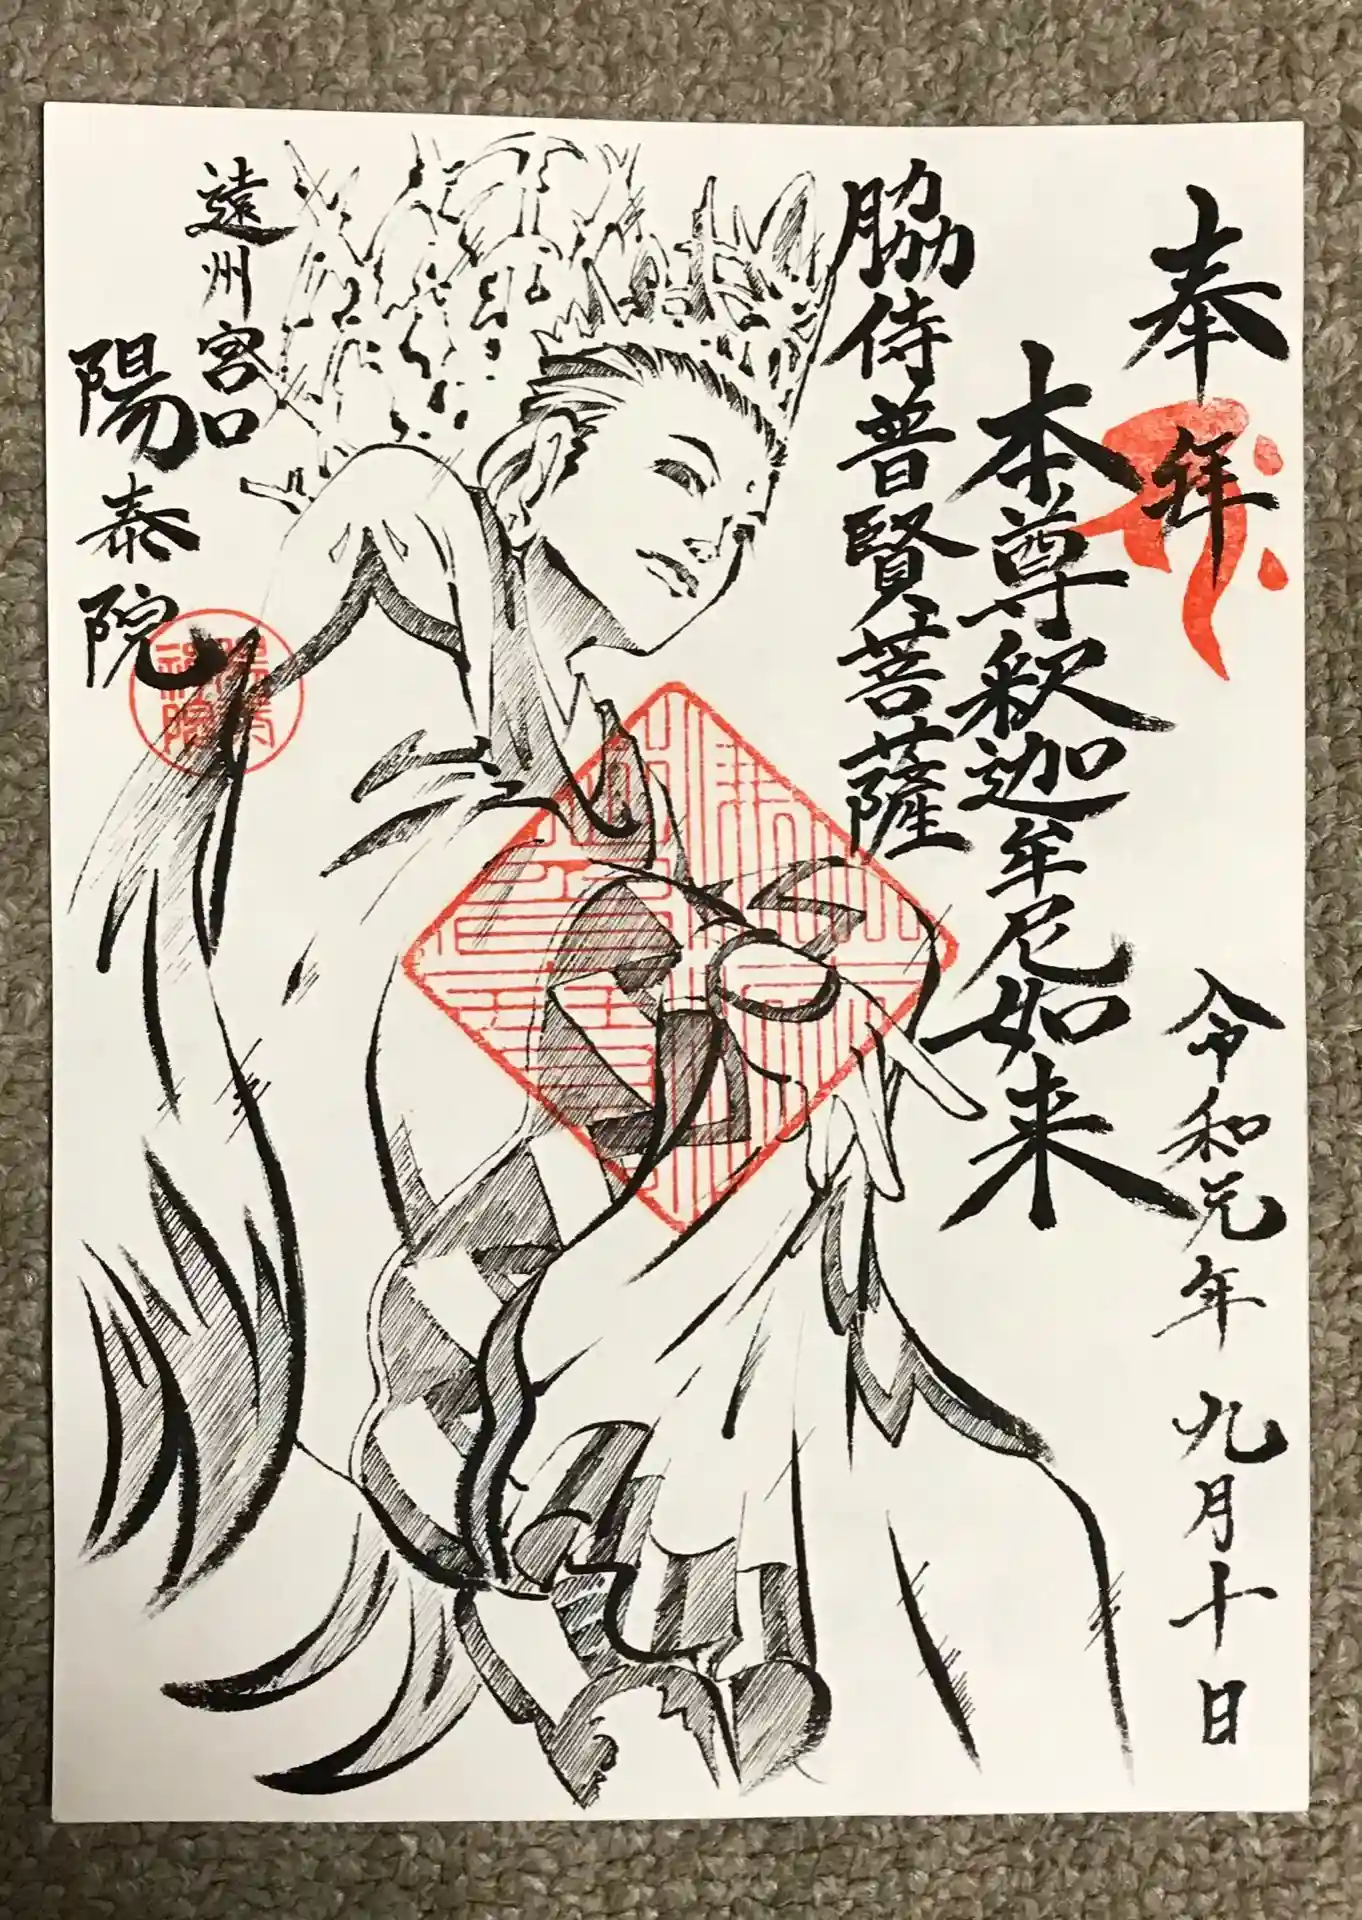 奉拝
本尊釈迦牟尼如来
脇侍普賢菩薩
令和元年九月十日
遠州宮口
陽泰院